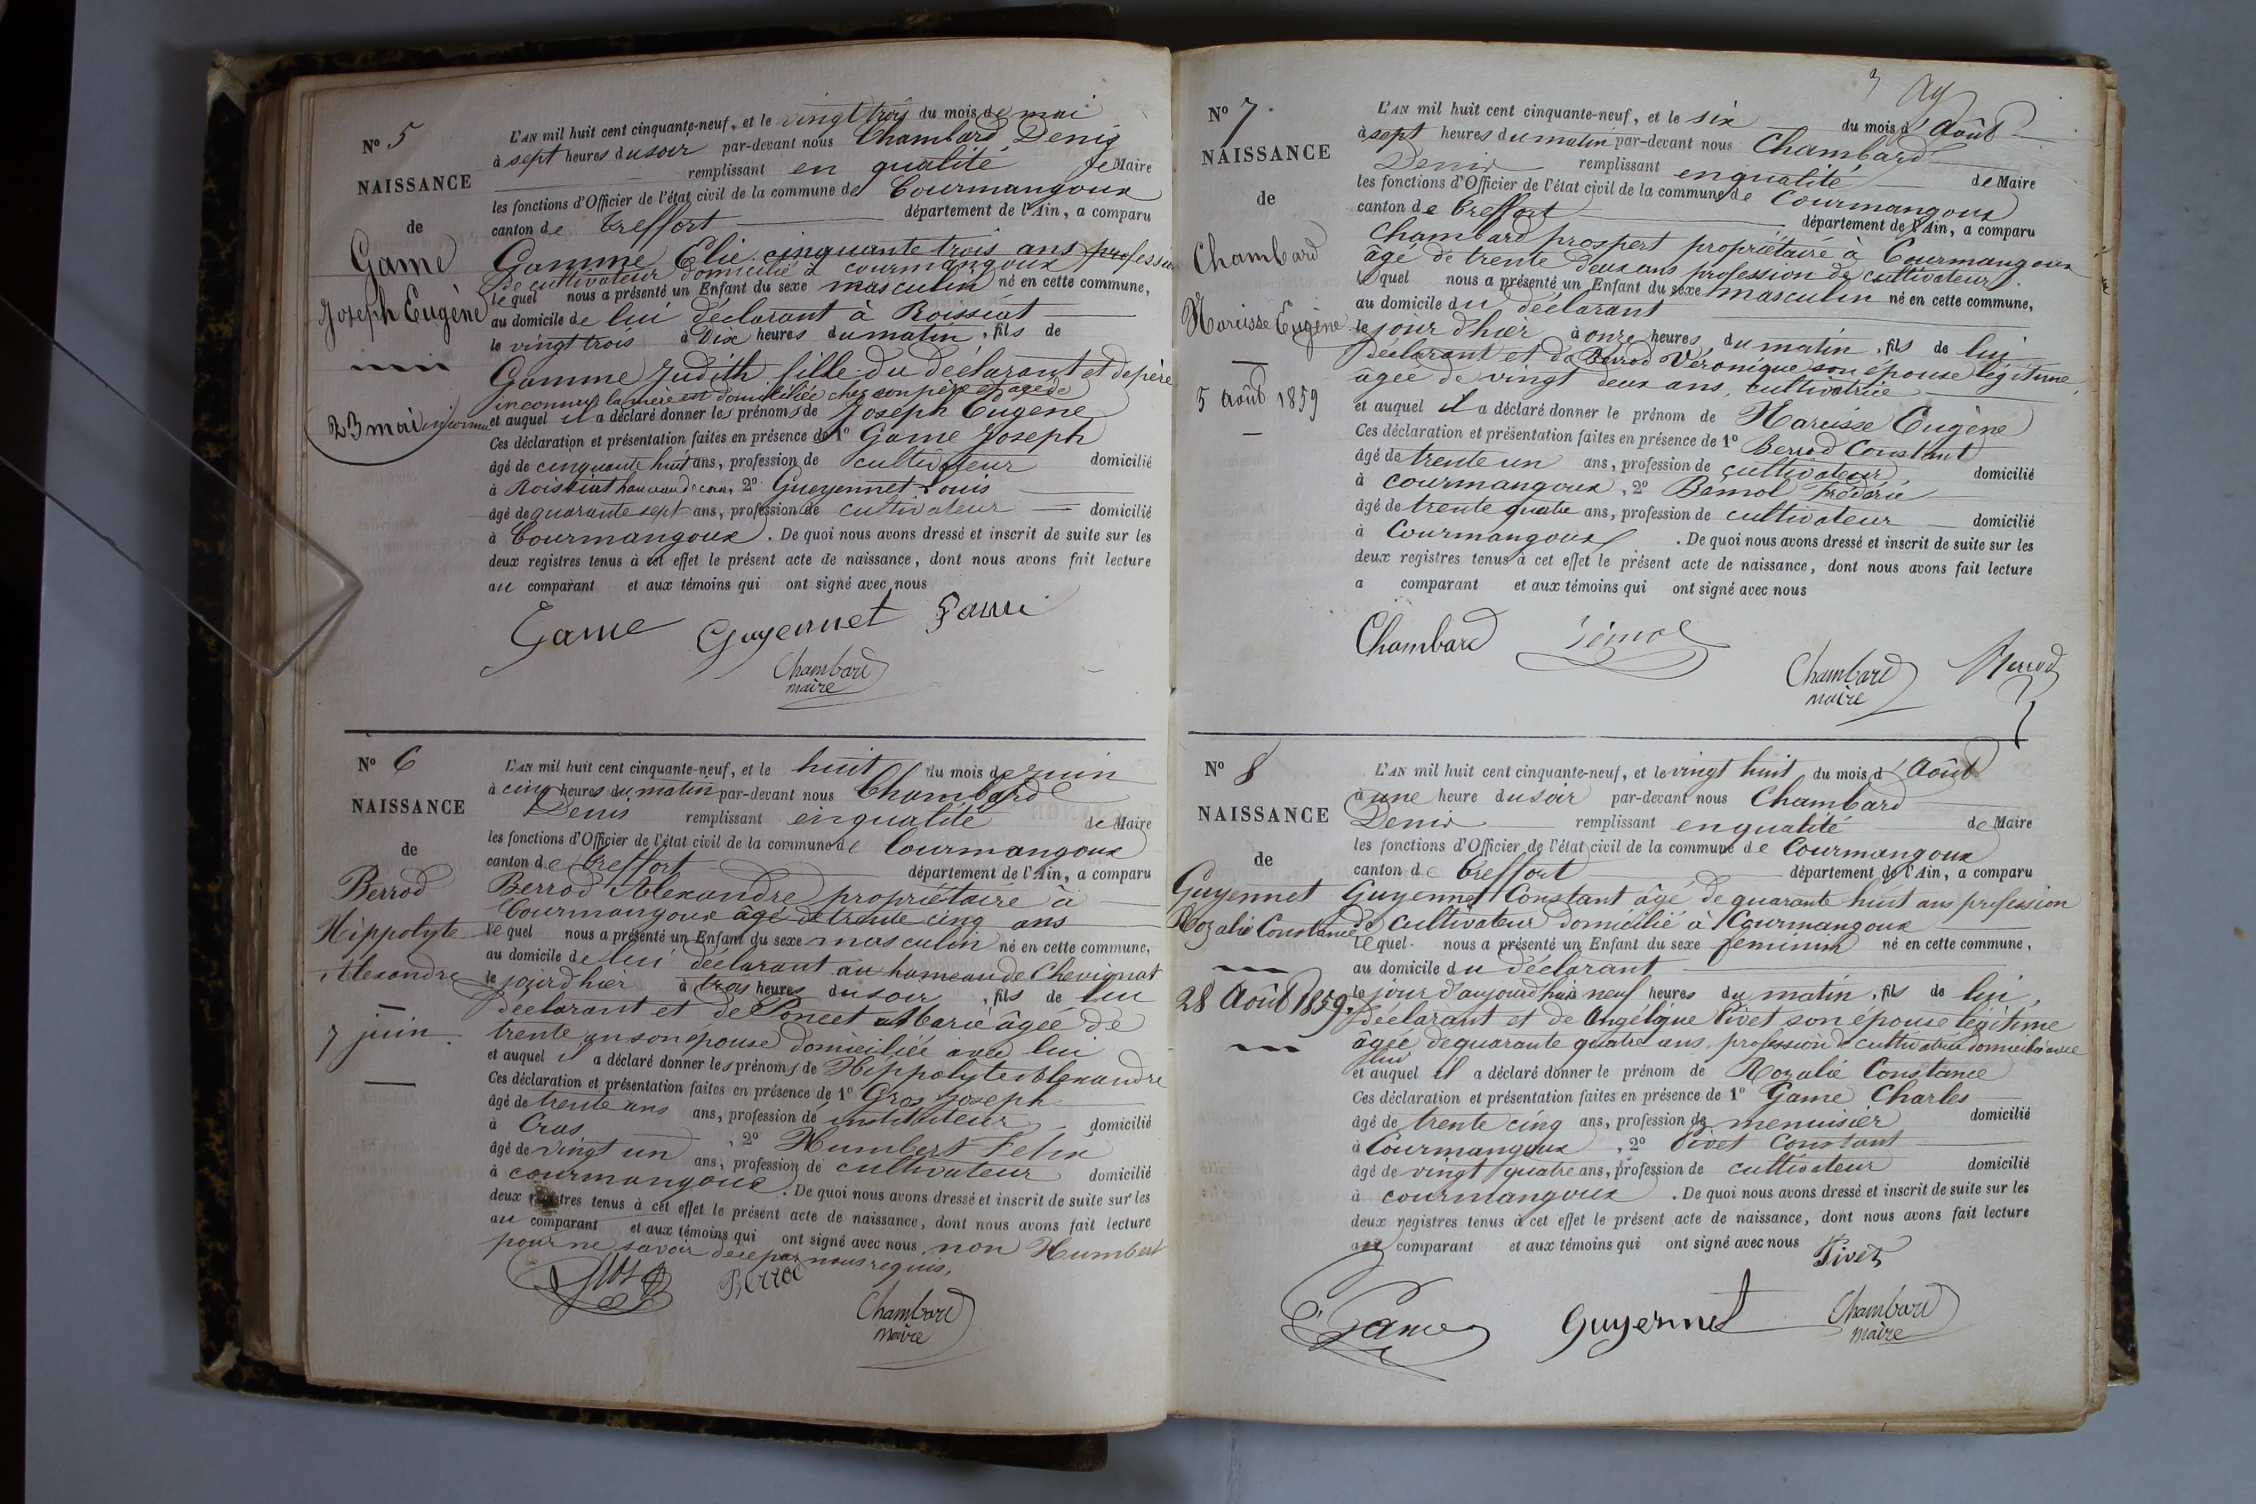 N° 5
NAISSANCE
de
Game
Joseph Eugène
23 mai
L'AN mil huit cent cinquante-neuf, et le vingt trois du mois de mai
à sept heures du soir par-devant nous Chambard Denis
remplissant en qualité de Maire
les fonctions d'Officier de l'état civil de la commune de Courmangoux
canton de Treffort département de l'Ain, a comparu
Gamme Elie cinquante trois ans profession
de cultivateur domicilié à courmangoux
lequel nous a présenté un Enfant du sexe masculin né en cette commune,
au domicile de lui déclarant à Roissiat
le vingt trois à Dix heures du matin, fils de
Gamme Judith fille du déclarant et de père
inconnu la mère est domiciliée chez son père et agée de
et auquel il a déclaré donner les prénoms de Joseph Eugene
Ces déclaration et présentation faites en présence de 1° Game Joseph
âgé de cinquante huit ans, profession de cultivateur domicilié
à Roissiat hameau de cour, 2° Gueyennet Louis
âgé de quarante sept ans, profession de cultivateur domicilié
à Courmangoux. De quoi nous avons dressé et inscrit de suite sur les
deux registres tenus à cet effet le présent acte de naissance, dont nous avons fait lecture
au comparant et aux témoins qui ont signé avec nous
Game Guyennet Game
Chambard
maire
N° 6
NAISSANCE
de
Berrod
Hippolyte
Alexandre
7 juin
L'AN mil huit cent cinquante-neuf, et le huit du mois de juin
à cinq heures du matin par-devant nous Chambard
Denis remplissant en qualité de Maire
les fonctions d'Officier de l'état civil de la commune de Courmangoux
canton de Treffort département de l'Ain, a comparu
Berrod Alexandre propriétaire à
Courmangoux âgé de trente cinq ans
lequel nous a présenté un Enfant du sexe masculin né en cette commune,
au domicile de lui déclarant au hameau de Chevignat
le jour d'hier à trois heures du soir, fils de lui
déclarant et de Poncet Marie âgée de
trente un son épouse domiciliée avec lui
et auquel il a déclaré donner les prénoms de Hippolyte Alexandre
Ces déclaration et présentation faites en présence de 1° Gros Joseph
âgé de trente ans ans, profession de instituteur domicilié
à Cras, 2° Humbert Felix
âgé de vingt un ans, profession de cultivateur domicilié
à courmangoux. De quoi nous avons dressé et inscrit de suite sur les
deux registres tenus à cet effet le présent acte de naissance, dont nous avons fait lecture
au comparant et aux témoins qui ont signé avec nous non Humbert
pour ne savoir de ce par nous requis.
Gros Berrod
Chambard
maire
3
N° 7
NAISSANCE
de
Chambard
Narcisse Eugène
5 août 1859
L'AN mil huit cent cinquante-neuf, et le six du mois d'Août
à sept heures du matin par-devant nous Chambard
Denis remplissant en qualité de Maire
les fonctions d'Officier de l'état civil de la commune de Courmangoux
canton de Treffort département de l'Ain, a comparu
Chambard prospert propriétaire à Courmangoux
âgé de trente deux ans profession de cultivateur
lequel nous a présenté un Enfant du sexe masculin né en cette commune,
au domicile du déclarant
le jour d'hier à onze heures du matin, fils de lui
déclarant et de Berrod Véronique son épouse légitime
âgée de vingt deux ans, cultivatrice
et auquel il a déclaré donner le prénom de Narcisse Eugène
Ces déclaration et présentation faites en présence de 1° Berrod Constant
âgé de trente un ans, profession de cultivateur domicilié
à courmangoux, 2° Bémol Frédéric
âgé de trente quatre ans, profession de cultivateur domicilié
à Courmangoux. De quoi nous avons dressé et inscrit de suite sur les
deux registres tenus à cet effet le présent acte de naissance, dont nous avons fait lecture
a comparant et aux témoins qui ont signé avec nous
Chambard
Chambard
maire
Berrod
N° 8
NAISSANCE
de
Guyennet
Rozalie Constance
28 Août 1859.
L'AN mil huit cent cinquante-neuf, et le vingt huit du mois d'Août
à une heure du soir par-devant nous Chambard
Denis remplissant en qualité de Maire
les fonctions d'Officier de l'état civil de la commune de Courmangoux
canton de Treffort département de l'Ain, a comparu
Guyennet Constant âgé de quarante huit ans profession
de cultivateur domicilié à Courmangoux
lequel nous a présenté un Enfant du sexe feminin né en cette commune,
au domicile du déclarant
le jour d'aujourd'hui à neuf heures du matin, fils de lui,
déclarant et de Angélique Pivet son épouse légitime
âgée de quarante quatre ans, profession de cultivatrice domiciliée avec
lui
et auquel il a déclaré donner le prénom de Rozalie Constance
Ces déclaration et présentation faites en présence de 1° Game Charles
âgé de trente cinq ans, profession de menuisier domicilié
à Courmangoux, 2° Pivet Constant
âgé de vingt quatre ans, profession de cultivateur domicilié
à courmangoux. De quoi nous avons dressé et inscrit de suite sur les
deux registres tenus à cet effet le présent acte de naissance, dont nous avons fait lecture
au comparant et aux témoins qui ont signé avec nous Pivet
Game Guyennet Chambard
maire